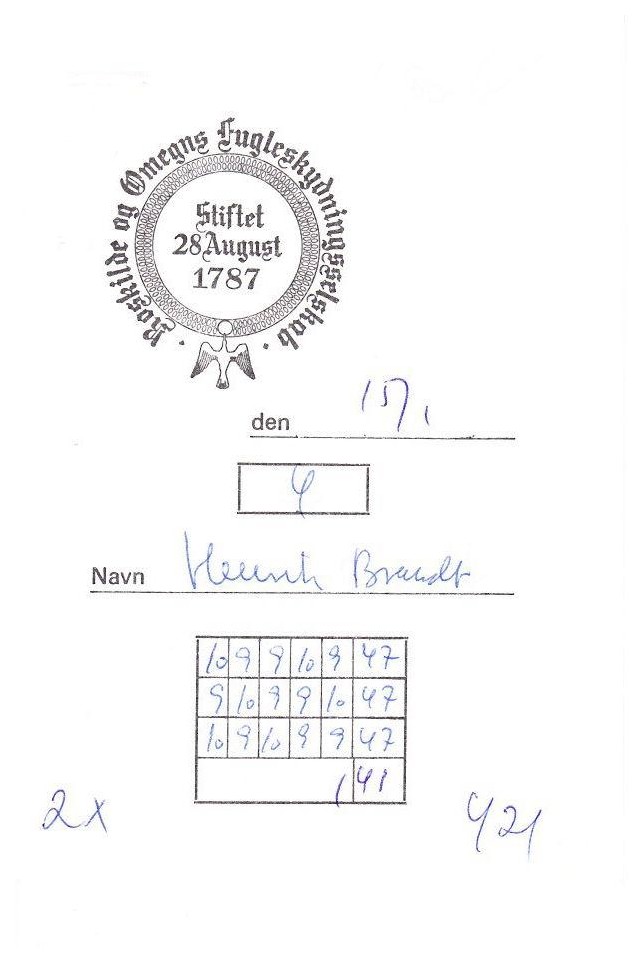 Roskilde og Omegns Fugleskydningsselskab
Stiftet
28 August
1787
den 15/1
4
Navn Henrik Brandt
10 9 9 10 9 47
9 10 9 9 10 47
10 9 10 9 9 47
141
2x 421